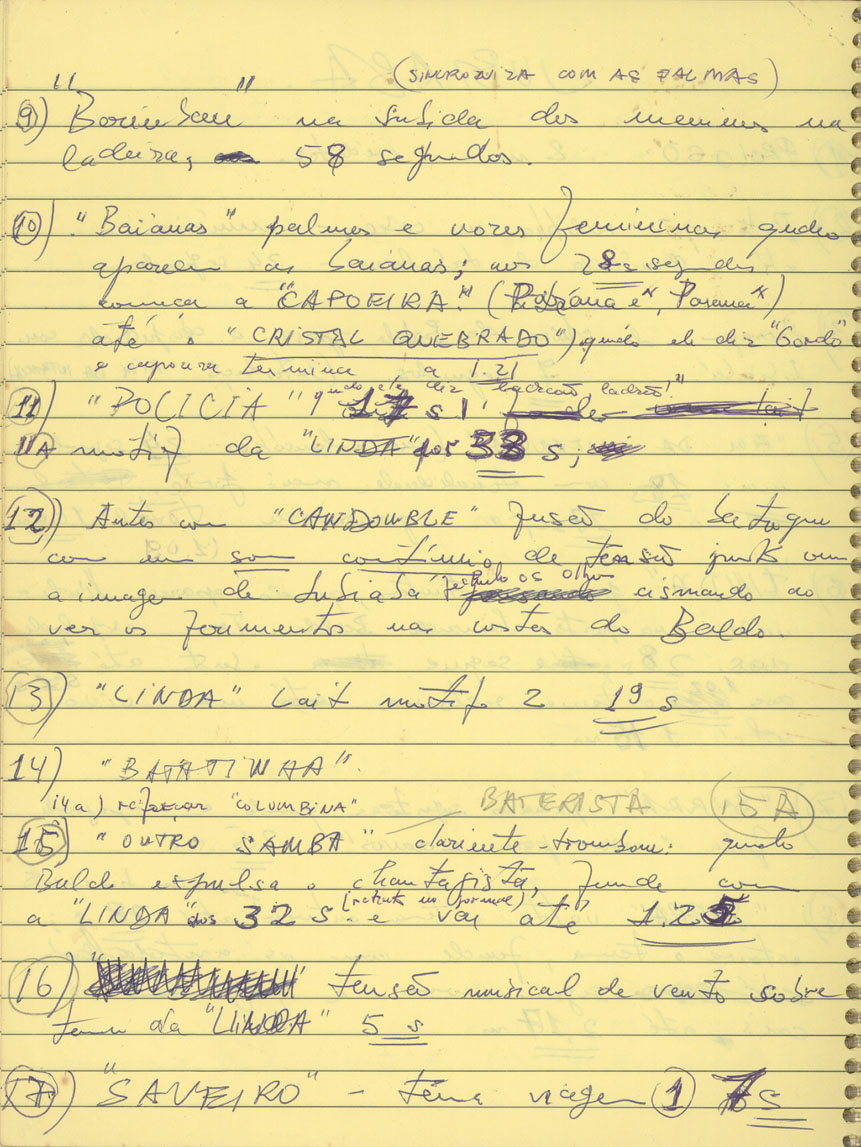 (SINCRONIZA COM AS PALMAS)
9) "Barimbau" na subida dos meninos na
ladeira, 58 segundos.
10) "Baianas" palmas e vozes femininas qudo
aparecem as baianas; aos 28s segundos
começa a "CAPOEIRA". ("Paraná")
até o "CRISTAL QUEBRADO") qudo ele diz "Gordo"
e capoeira termina a 1.21
11) "POLICIA" qudo ele diz ladrão, ladrão!" 17 s
11A motif da "LINDA" por 38 s;
12) Antes com "CANDOMBLE" fusão do batuque
com um som contínuo de tensão junto com
a imagem de fechando os olhos cismando ao
ver os ferimentos nas costas do Baldo.
13) "LINDA" Lait motif 2 19 s
14) "BATATINHA".
14a) reforçar "COLUMBINA" BATERISTA 15A
15) "OUTRO SAMBA" clarinete-trombone: quado
Baldo expulsa o chantagista, funde com
a "LINDA" aos 32 s. (retrato no jornal) e vai até 1.25
16) tensão musical de vento sobre
tema da "LINDA" 5 s
17) "SAVEIRO" - tema viagem 1 7s